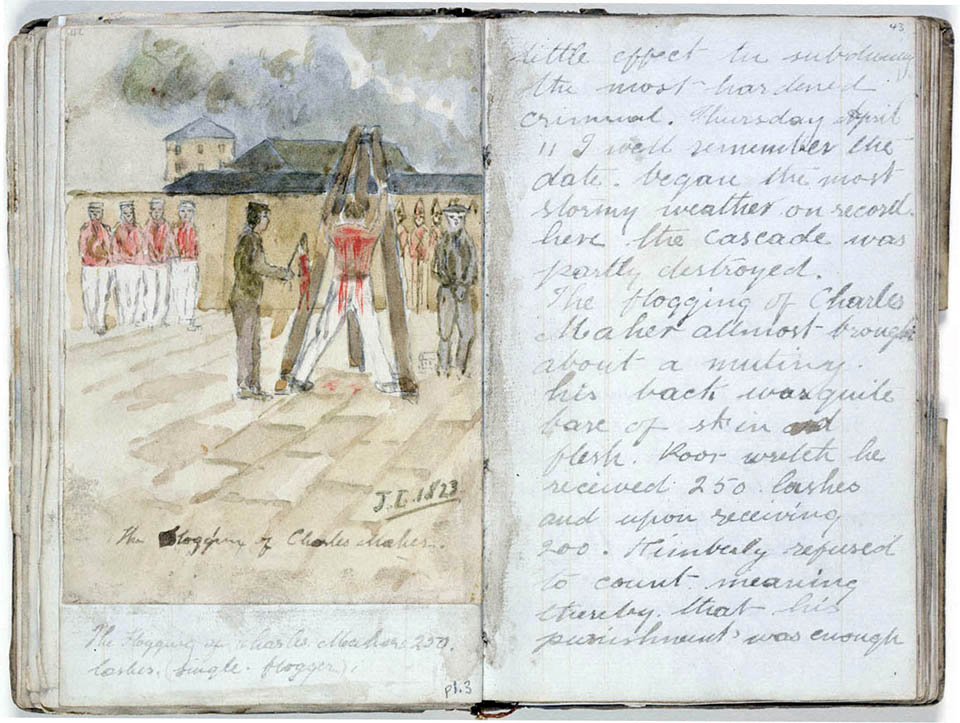 42
J.L. 1823
The Flogging of Charles Maher.
The Flogging of Charles Maher 250.
lashes. (single flogger).
pl.3
43
little effect in subduing
the most hardened
criminal. Thursday April
11 I well remember the
date. began the most
stormy weather on record.
here the Cascade was
partly destroyed.
The flogging of Charles
Maher allmost brough
about a mutiny.
his back was quite
bare of skin and
flesh. Poor wretch he
received 250 lashes
and upon receiving
200. Kimberly refused
to count meaning
thereby. that his
punishment was enough